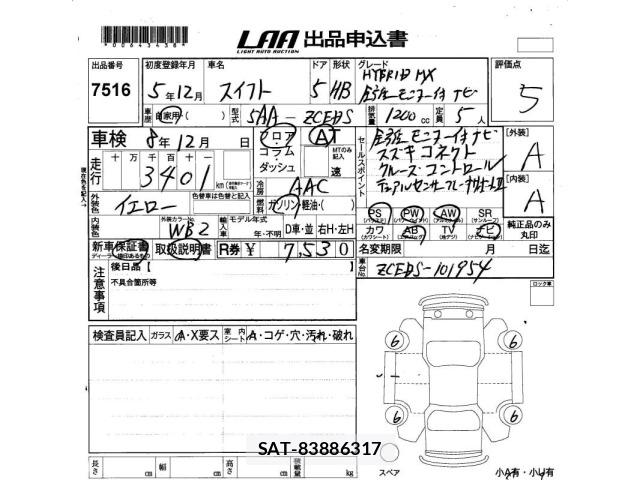 *0064343*
LAA 出品申込書
LIGHT AUTO AUCTION
出品番号 初度登録年月 車名 ドア 形状 グレード 評価点
7516 5年12月 スイフト 5 HB HYBRID MX
全方位モニター付ナビ 5
車歴 自家用・( ) 型式 5AA-ZCEDS 排気量 1200cc 定員 5人
車検 8年12月 日 フロア・コラム・ダッシュ AT MTのみ記入 速
セールスポイント
全方位モニター付ナビ
スズキコネクト
クルーズコントロール
デュアルセンサーブレーキサポートⅡ
【外装】 A
【内装】 A
走行 十 万 千 百 十 一
3401 km
冷房 AAC
燃料 ガソリン・軽油・( )
外装色 イエロー 色替車は色替と記入
内装色 外装カラーNo. WB2 輸入車 モデル年式 年・不明 D車・並 右H・左H
PS PW AW SR
カワ AB TV ナビ
純正品のみ丸印
新車保証書 取扱説明書 R券 ¥ 7,530 名変期限 月 日迄
注意事項 後日品【
不具合箇所等
車台No. ZCEDS-101954
ロック車
検査員記入 ガラス A・X要ス 室内シート A・コゲ・穴・汚れ・破れ
6 6
6 6
SAT-83886317
長さ cm 幅 cm 高さ cm 積載量 kg
スペア 小A有・小U有